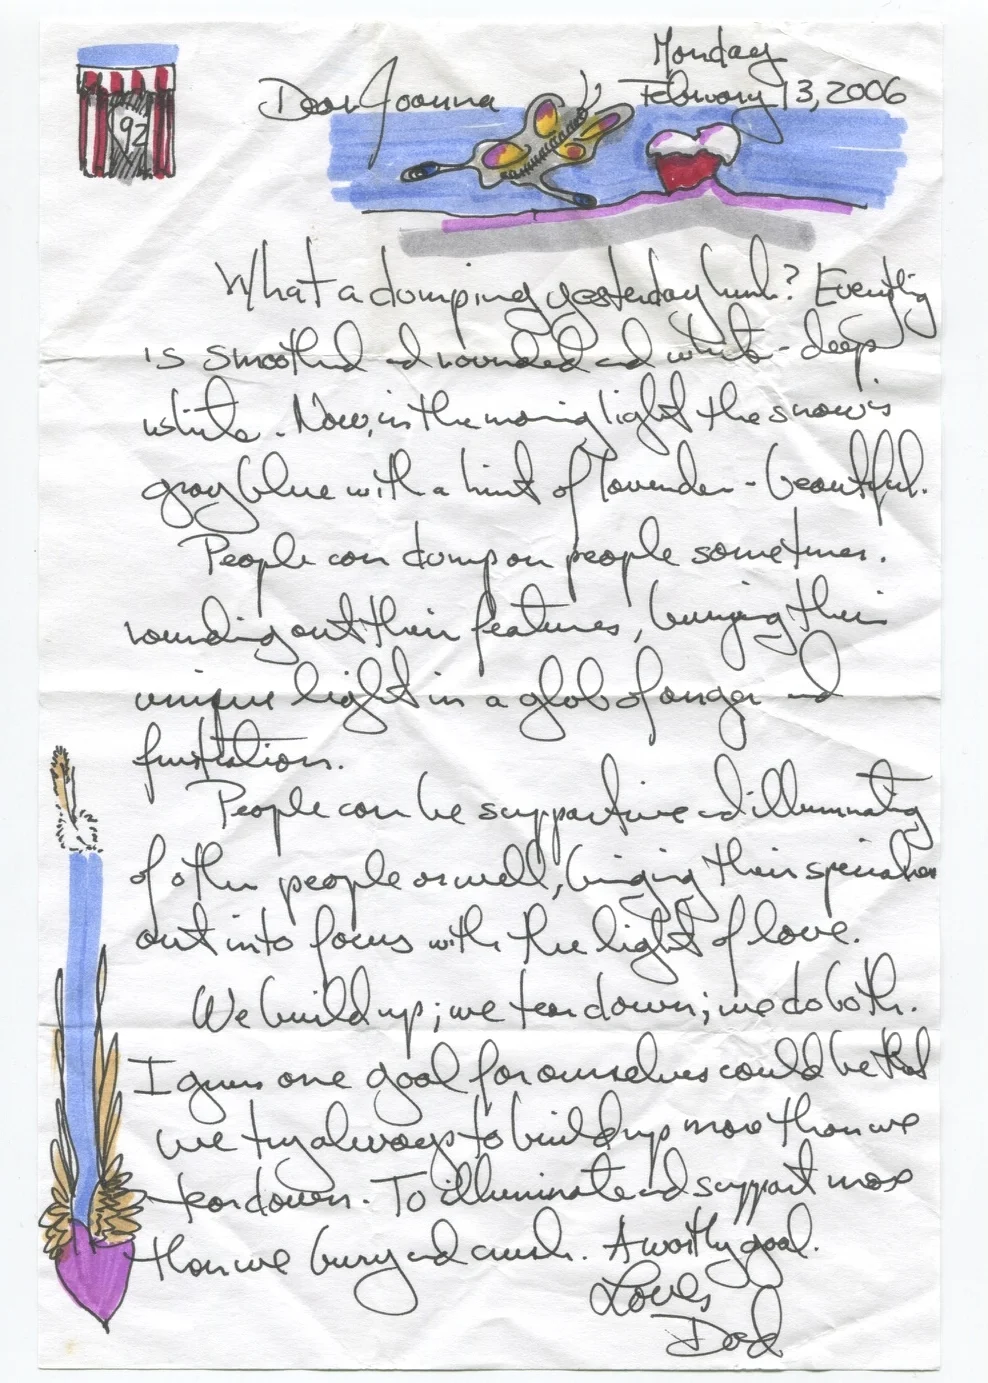 Monday
Dear Joanna
February 13, 2006
92
What a dumping yesterday hunh? Everything
is smoothed and rounded and white - deep
white. Now, in the morning light the snow is
gray blue with a hint of lavender - beautiful.
People can dump on people sometimes.
rounding out their features, burying their
unique light in a glob of anger and
frustration.
People can be supportive and illuminating
of other people as well, bringing their specialness
out into focus with the light of love.
We build up; we tear down; we do both.
I guess one goal for ourselves could be that
we try always to build up more than we
tear down. To illuminate and support more
than we bury and crush. A worthy goal.
Love,
Dad